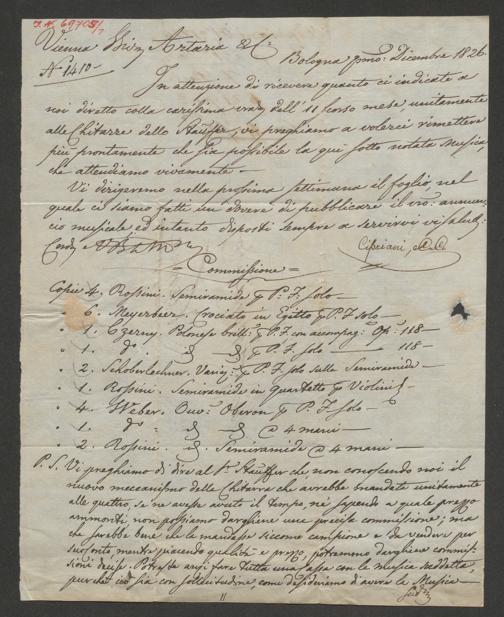 I.N. 69705/7
Vienna Sig.ri Artaria & C.
Bologna pmo. Dicembre 1826.
No. 1410-
In attenzione di ricevere quanto ci indicate a
noi diretto colla carissima vra. dell' 11 scorso mese unitamente
alle Chitarre dello Stauffer, vi preghiamo a volerci rimettere
più prontamente che sia possibile la qui sotto notata Musica,
che attendiamo vivamente -
Vi dirigeremo nella prossima settimana il foglio, nel
quale ci siamo fatti un dovere di pubblicare il vro. annun-
cio musicale ed intanto disposti sempre a servirvi vi salut.
Cipriani, e C.C.
= Commissione =
Copie 4. Rossini. Semiramide p. P. F. solo -
" 6. Meyerbeer. Crociato in Egitto p. P. F. solo -
" 1. Czerny. Polonese brill. p. P. F. con accompag. Op. 118 -
" 1. do. p. P. F. solo - 118 -
" 2. Schoberlechner. Variaz. p. P. F. solo sulla Semiramide -
" 1. Rossini. Semiramide in quartetto p. Violini
" 4. Weber. Ouv. Oberon p. P. F. solo -
" 1. do. @ 4 mani -
" 2. Rossini. Semiramide @ 4 mani -
P. S. Vi preghiamo di dire al Sr. Stauffer che non conoscendo noi il
nuovo meccanismo delle Chitarra che avrebbe mandate unitamente
alle quattro, se ne avesse avuto il tempo, nè sapendo a quale prezzo
ammonti, non possiamo dargliene una precisa commissione; ma
che sarebbe bene che la mandasse siccome campione e da vendere per
suo conto, mentre piacendo qualità e prezzo, potremmo dargliene commis-
sioni decise. Potreste anzi fare tutta una cassa con la musica suddetta,
purchè ciò sia con sollecitudine, come desideriamo di avere la Musica -